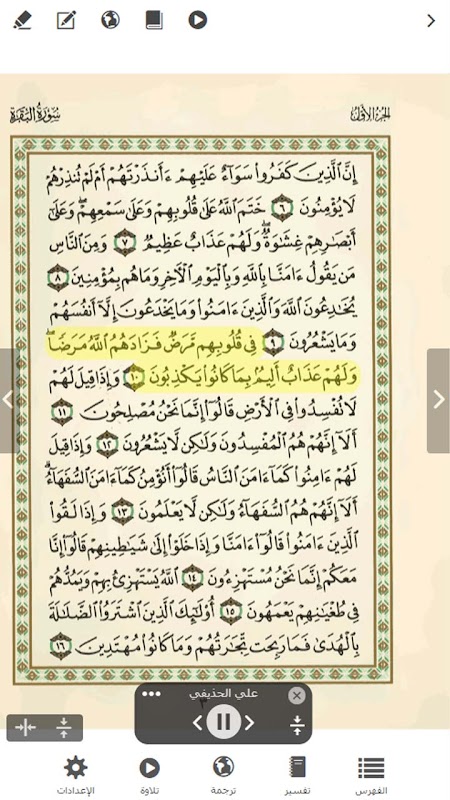 سُورَةُ البَقَرَةِ
الجُزءُ الأَوَّلُ
إِنَّ ٱلَّذِينَ كَفَرُوا۟ سَوَآءٌ عَلَيْهِمْ ءَأَنذَرْتَهُمْ أَمْ لَمْ تُنذِرْهُمْ
لَا يُؤْمِنُونَ ٦ خَتَمَ ٱللَّهُ عَلَىٰ قُلُوبِهِمْ وَعَلَىٰ سَمْعِهِمْ ۖ وَعَلَىٰٓ
أَبْصَٰرِهِمْ غِشَٰوَةٌ ۖ وَلَهُمْ عَذَابٌ عَظِيمٌ ٧ وَمِنَ ٱلنَّاسِ
مَن يَقُولُ ءَامَنَّا بِٱللَّهِ وَبِٱلْيَوْمِ ٱلْءَاخِرِ وَمَا هُم بِمُؤْمِنِينَ ٨
يُخَٰدِعُونَ ٱللَّهَ وَٱلَّذِينَ ءَامَنُوا۟ وَمَا يَخْدَعُونَ إِلَّآ أَنفُسَهُمْ
وَمَا يَشْعُرُونَ ٩ فِى قُلُوبِهِم مَّرَضٌ فَزَادَهُمُ ٱللَّهُ مَرَضًا ۖ
وَلَهُمْ عَذَابٌ أَلِيمٌۢ بِمَا كَانُوا۟ يَكْذِبُونَ ١٠ وَإِذَا قِيلَ لَهُمْ
لَا تُفْسِدُوا۟ فِى ٱلْأَرْضِ قَالُوٓا۟ إِنَّمَا نَحْنُ مُصْلِحُونَ ١١
أَلَآ إِنَّهُمْ هُمُ ٱلْمُفْسِدُونَ وَلَٰكِن لَّا يَشْعُرُونَ ١٢ وَإِذَا قِيلَ
لَهُمْ ءَامِنُوا۟ كَمَآ ءَامَنَ ٱلنَّاسُ قَالُوٓا۟ أَنُؤْمِنُ كَمَآ ءَامَنَ ٱلسُّفَهَآءُ ۗ
أَلَآ إِنَّهُمْ هُمُ ٱلسُّفَهَآءُ وَلَٰكِن لَّا يَعْلَمُونَ ١٣ وَإِذَا لَقُوا۟
ٱلَّذِينَ ءَامَنُوا۟ قَالُوٓا۟ ءَامَنَّا وَإِذَا خَلَوْا۟ إِلَىٰ شَيَٰطِينِهِمْ قَالُوٓا۟ إِنَّا
مَعَكُمْ إِنَّمَا نَحْنُ مُسْتَهْزِءُونَ ١٤ ٱللَّهُ يَسْتَهْزِئُ بِهِمْ وَيَمُدُّهُمْ
فِى طُغْيَٰنِهِمْ يَعْمَهُونَ ١٥ أُو۟لَٰٓئِكَ ٱلَّذِينَ ٱشْتَرَوُا۟ ٱلضَّلَٰلَةَ
بِٱلْهُدَىٰ فَمَا رَبِحَت تِّجَٰرَتُهُمْ وَمَا كَانُوا۟ مُهْتَدِينَ ١٦
علي الحذيفي
الفهرس
تفسير
ترجمة
تلاوة
الإعدادات